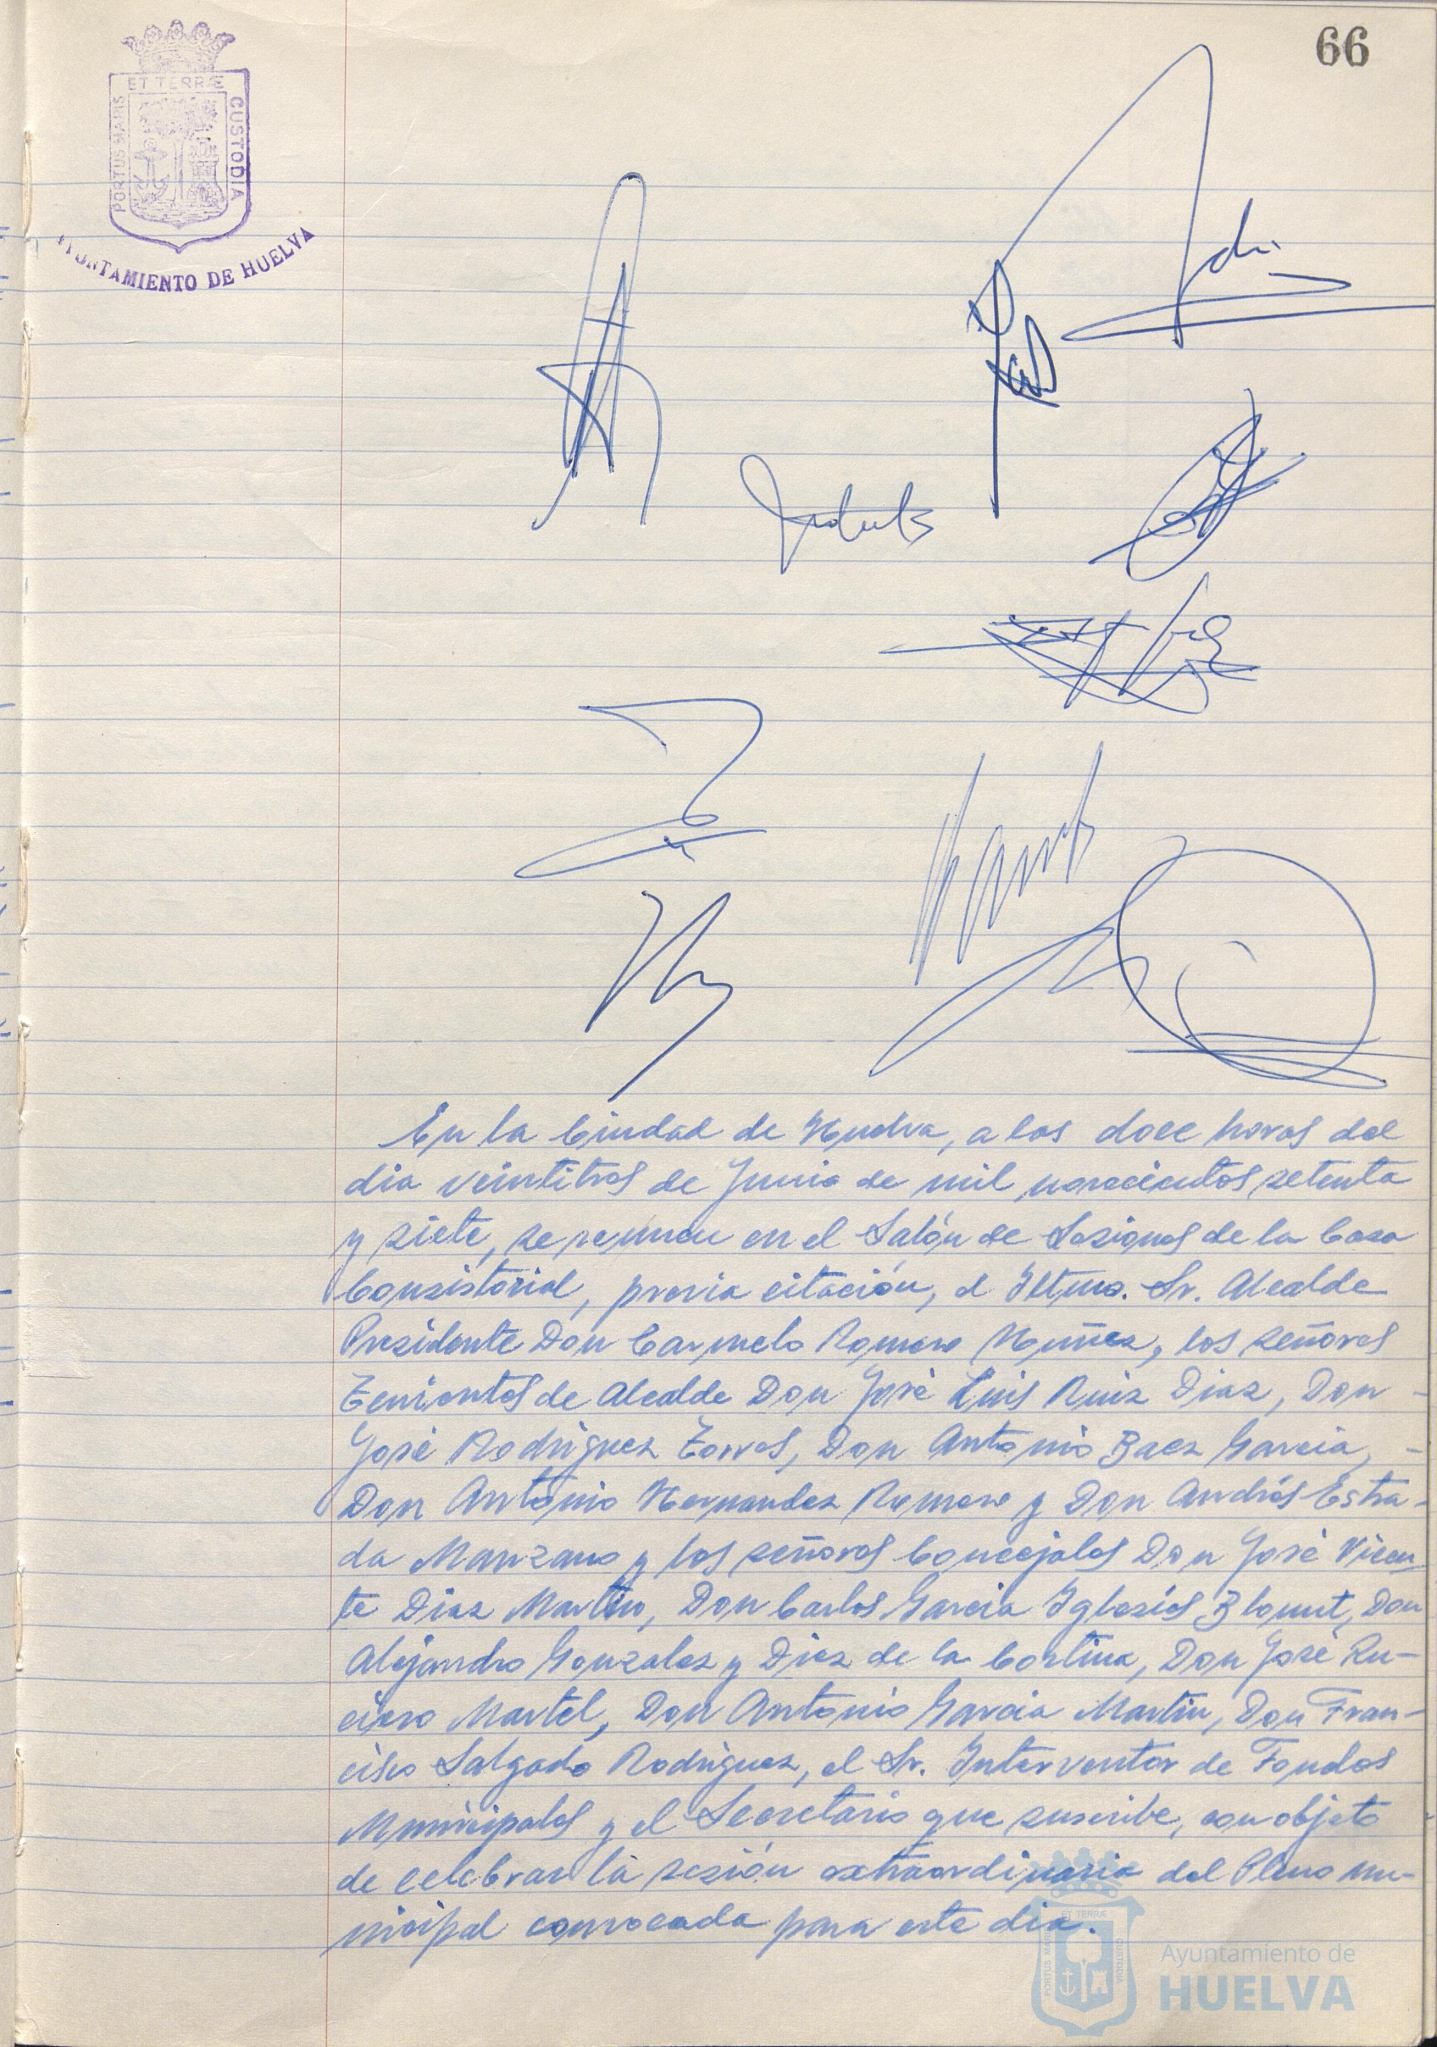 66
ET TERRÆ
PORTUS MARIS
CUSTODIA
AYUNTAMIENTO DE HUELVA
En la Ciudad de Huelva, a las doce horas del
dia veintitres de Junio de mil novecientos setenta
y siete, se reunen en el Salón de Sesiones de la Casa
Consistorial, previa citación, el Iltmo. Sr. Alcalde
Presidente Don Carmelo Romero Nuñez, los señores
Tenientes de Alcalde Don José Luis Ruiz Diaz, Don
José Rodriguez Torres, Don Antonio Baez Garcia,
Don Antonio Hernandez Romero y Don Andrés Estra-
da Manzano y los señores Concejales Don José Vicen-
te Diaz Martin, Don Carlos Garcia Iglesias Blount, Don
Alejandro Gonzalez y Diez de la Cortina, Don José Ru-
ciero Martel, Don Antonio Garcia Martin, Don Fran-
cisco Salgado Rodriguez, el Sr. Interventor de Fondos
Municipales y el Secretario que suscribe, con objeto
de celebrar la sesión extraordinaria del Pleno mu-
nicipal convocada para este dia.
ET TERRÆ
PORTUS MARIS
CUSTODIA
Ayuntamiento de
HUELVA